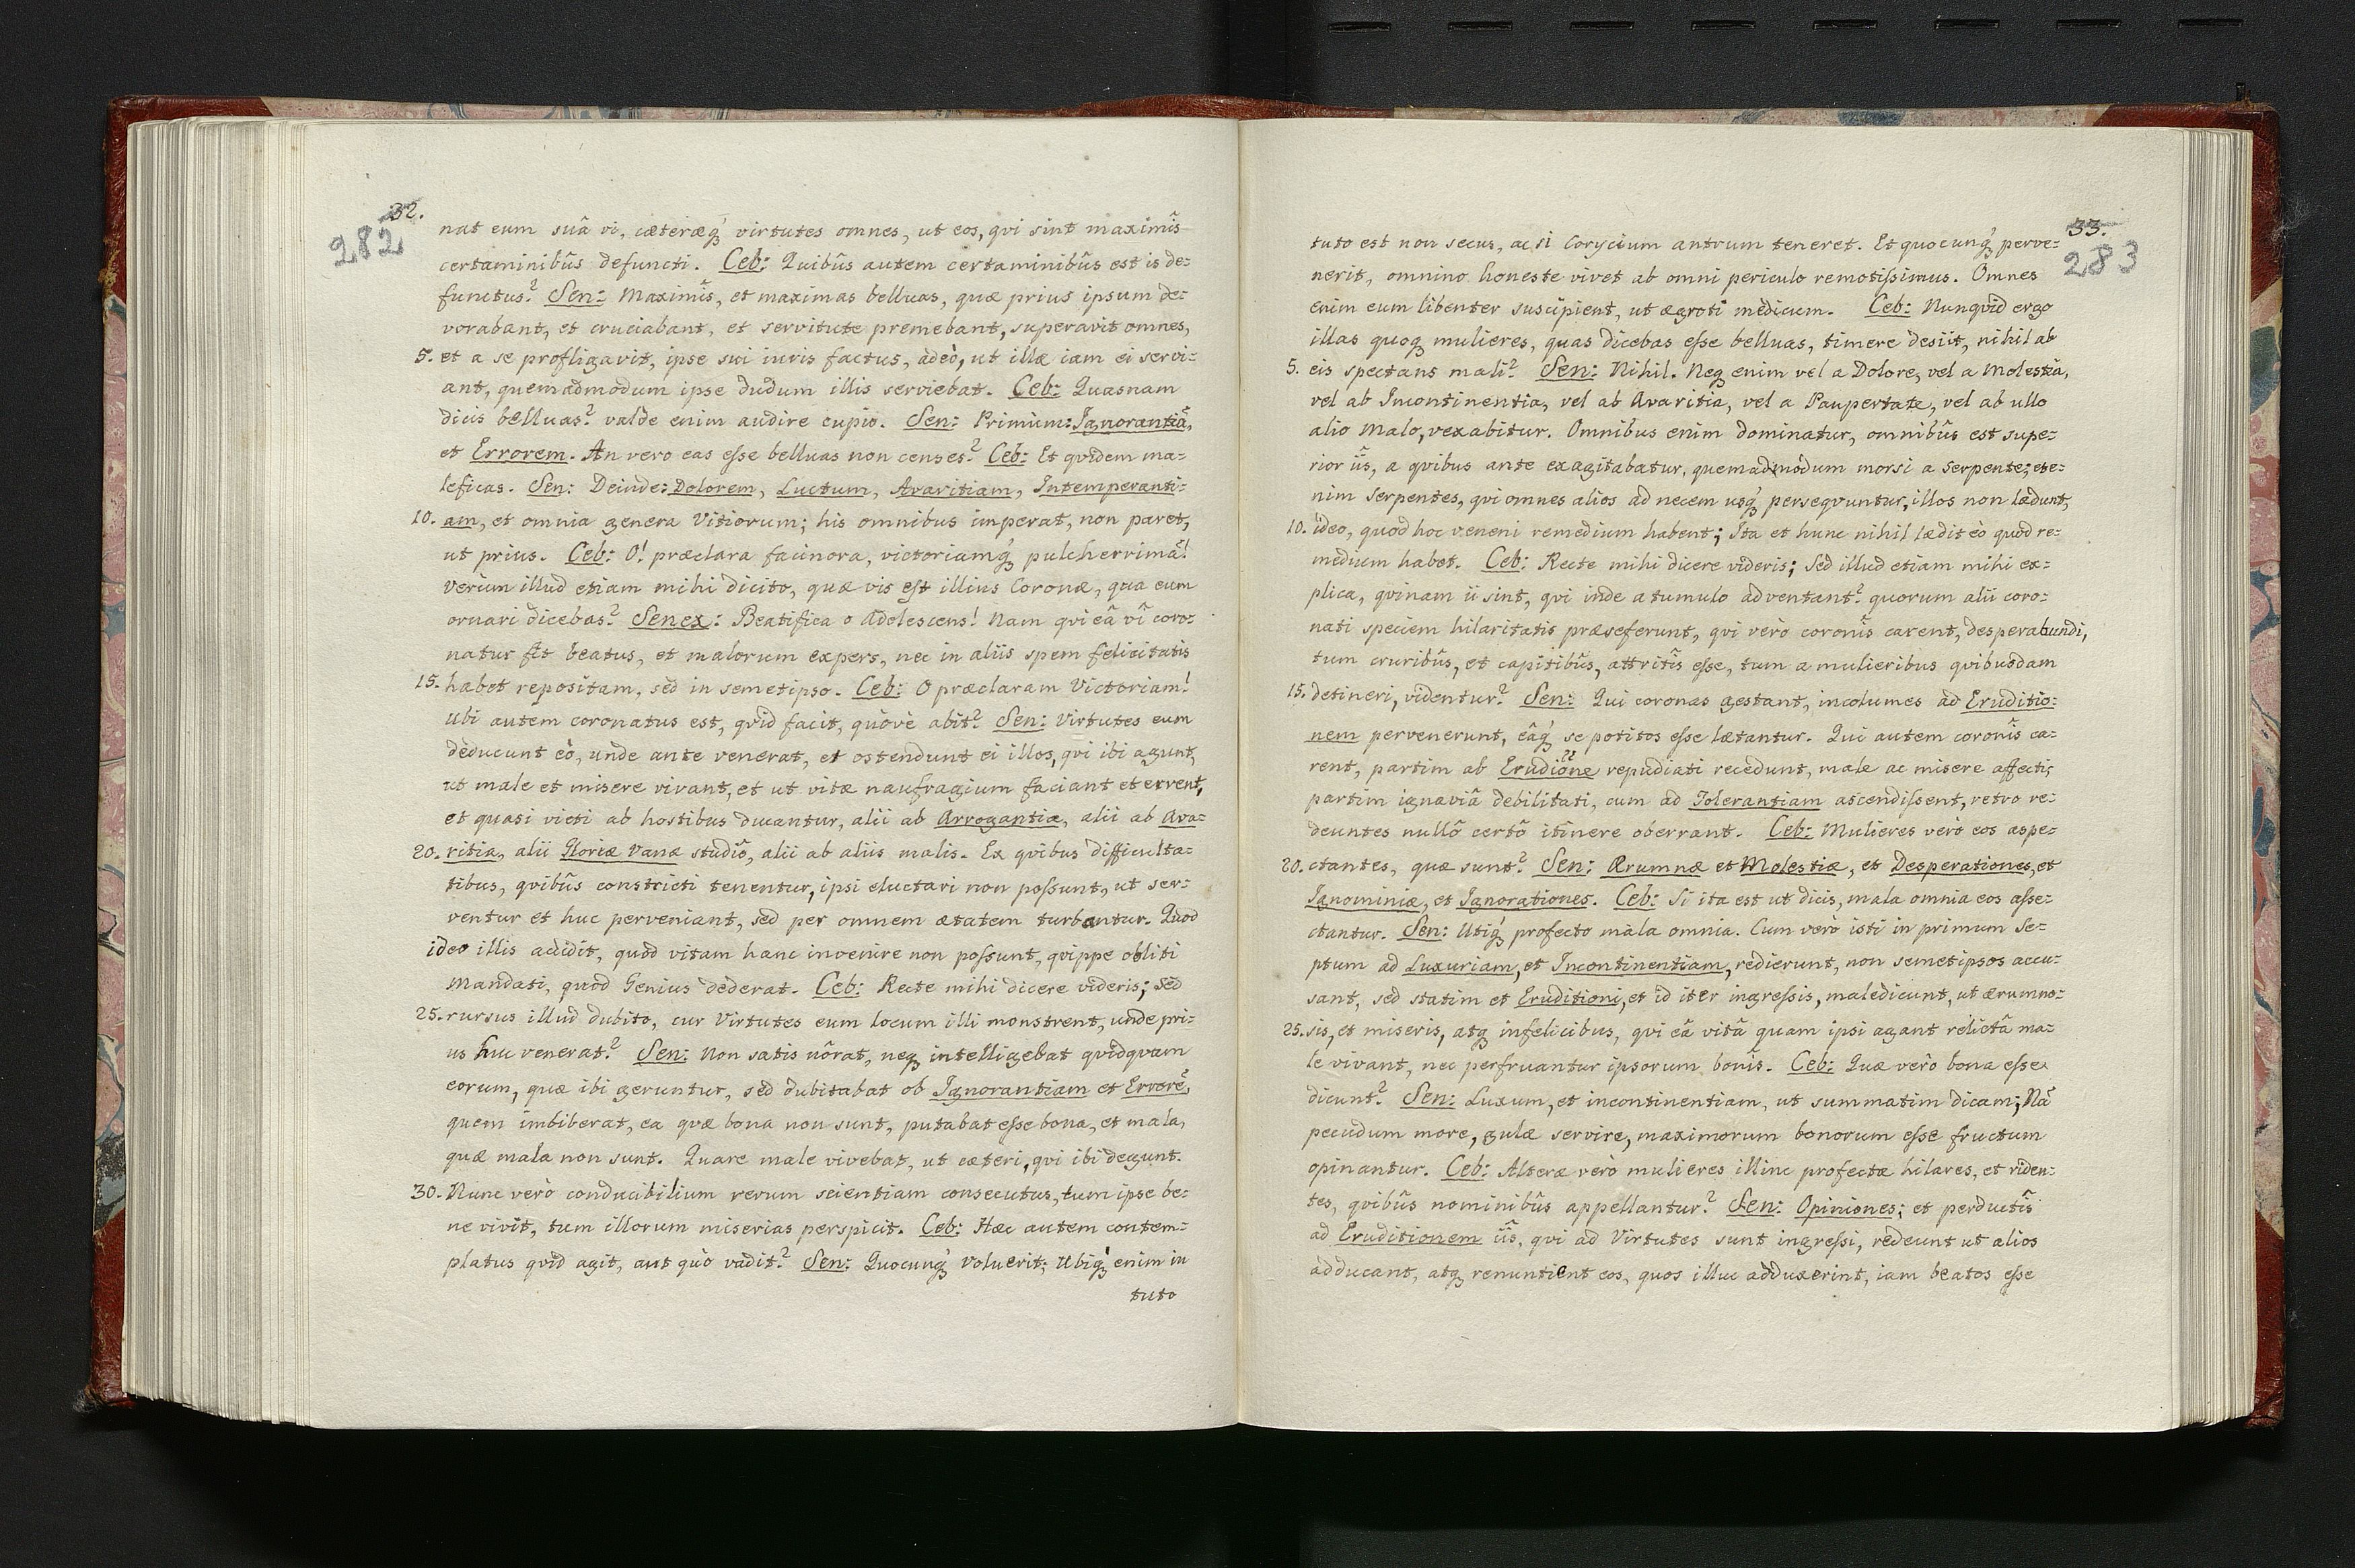 32.
282
nat eum suâ vi, cæteræq́ꝫ virtutes omnes, ut eos, qvi sint maximîs
certaminibûs defuncti. Ceb: Quibûs autem certaminibûs est is de=
functus? Sen: Maximîs, et maximas belluas, quæ prius ipsum de=
vorabant, et cruciabant, et servitute premebant, superavit omnes,
5. et a se profligavit, ipse sui iuris factus, àdeò, ut illæ iam ei servi=
ant, quemadmodum ipse dudum illis serviebat. Ceb: Quasnam
dicis belluas? valde enim audire cupio. Sen: Primùm: Ignorantiã,
et Errorem. An vero eas eſse belluas non censes? Ceb: Et qvidem ma=
leficas. Sen: Deinde: Dolorem, Luctum, Avaritiam, Intemperanti=
10. am, et omnia genera Vitiorum; his omnibus imperat, non paret,
ut prius. Ceb: O! præclara facinora, victoriamq́ꝫ pulcherrimã!
Verùm illud etiam mihi dicito, quæ vis eſt illius Coronæ, qua eum
ornari dicebas? Senex: Beatifica o Adolescens! Nam qvi eâ vî coro=
natur fit beatus, et malorum expers, nec in aliis spem felicitatis
15. habet repositam, sed in semetipso. Ceb: O præclaram Victoriam!
Ubi autem coronatus est, qvid facit, quòvè abit? Sen: Virtutes eum
dèducunt eò, unde ante venerat, et ostendunt ei illos, qvi ibi agunt,
ut male et misere vivant, et ut vitæ naufragium faciant et errent,
et quasi victi ab hostibus ducantur, alii ab Arrogantia, alii ab Ava=
20. ritia, alii Gloriæ Vanæ studiô, alii ab aliis malis. Ex qvibus difficulta=
tibus, qvibûs constricti tenentur, ipsi eluctari non poſsunt, ut ser=
ventur et huc perveniant, sed per omnem ætatem turbantur. Quod
ideo illis accidit, quòd vitam hanc invenire non poſsunt, qvippe obliti
Mandati, quòd Genius dederat. Ceb: Recte mihi dicere videris; Sed
25. rursus illud dubito, cur Virtutes eum locum illi monstrent, unde pri=
us huc venerat? Sen: Non satis nôrat, neqꝫ intelligebat qvidqvam
eorum, quæ ibi geruntur, sed dubitabat ob Ignorantiam et Errorẽ,
quem imbiberat, ea qvæ bona non sunt, putabat eſse bona, et mala,
quæ mala non sunt. Quare male vivebat, ut cæteri, qvi ibi degunt.
30. Nunc verò conducibilium rerum scientiam consecutus, tum ipse be=
ne vivit, tum illorum miserias perspicit. Ceb: Hæc autem contem=
platus qvid agit, aut quò vadit? Sen: Quocunq́ꝫ Voluerit; Ubiq́ꝫ enim in
tuto
33.
283
tuto est non secus, ac si Corycium antrum teneret. Et quocunq́ꝫ perve=
nerit, omnino honeste vivet ab omni periculo remotiſsimus. Omnes
enim eum libenter suscipient, ut ægroti mèdicum. Ceb: Nunqvid ergo
illas quoqꝫ mulieres, quas dicebas eſse belluas, timere desiit, nihil ab
5. eis spectans mali? Sen: Nihil. Neqꝫ enim vel a Dolore, vel a Molestiâ,
vel ab Incontinentia, vel ab Avaritia, vel a Paupertate, vel ab ullo
alio Malo, vexabitur. Omnibus enim dominatur, omnibûs est supe=
rior iîs, a qvibus ante exagitabatur, quemadmòdum morsi a serpente; ete=
nim serpentes, qvi omnes alios ad necem usq́ꝫ perseqvuntur, illos non lædunt,
10. ideo, quòd hoc veneni remedium habent; Ita et hunc nihil lædit eò quòd re=
medium habet. Ceb: Recte mihi dicere videris; Sed illud etiam mihi ex=
plica, qvinam ii sint, qvi inde a tumulo adventant? quorum alii coro=
nati speciem hilaritatis præseferunt, qvi verò coronîs carent, desperabundi,
tum cruribûs, et capitibûs, attritîs eſse, tum a mulieribus qvibusdam
15. detineri, videntur? Sen: Qui coronas gestant, incolumes ad Eruditio=
nem pervenerunt, eâq́ꝫ se potitos eſse lætantur. Qui autem coronîs ca=
rent, partim ab Erudi͠one repudiati recedunt, male ac misere affecti;
partim ignaviâ debilitati, cum ad Tolerantiam ascendiſsent, retro re=
deuntes nullô certô itinere oberrant. Ceb: Mulieres verò eos aspe=
20. ctantes, quæ sunt? Sen: Ærumnæ et Molestiæ, et Desperationes, et
Ignominiæ, et Ignorationes. Ceb: Si ita est ut dicis, mala omnia eos aſse=
ctantur. Sen: Utiq́ꝫ profecto màla omnia. Cum verò isti in primum Se=
ptum ad Luxuriam, et Incontinentiam, redierunt, non semetipsos accu=
sant, sed statim et Eruditioni, et id iter ingreſsis, maledicunt, ut ærumno=
25. sis, et miseris, atqꝫ infelicibus, qvi eâ vitâ quam ipsi agant relictâ ma=
le vivant, nec perfruantur ipsorum bonîs. Ceb: Quæ verò bona eſse
dicunt? Sen: Luxum, et incontinentiam, ut summatim dicam; Nã
pecudum more, gulæ servire, maximorum bonorum eſse fructum
opinantur. Ceb: Alteræ verò mulieres illinc profectæ hilares, et riden=
tes, qvibûs nominibûs appellantur? Sen: Opiniones; et perductîs
ad Eruditionem iîs, qvi ad Virtutes sunt ingreſsi, redeunt ut alios
adducant, atqꝫ renuntient eos, quos illuc adduxerint, iam beatos eſse